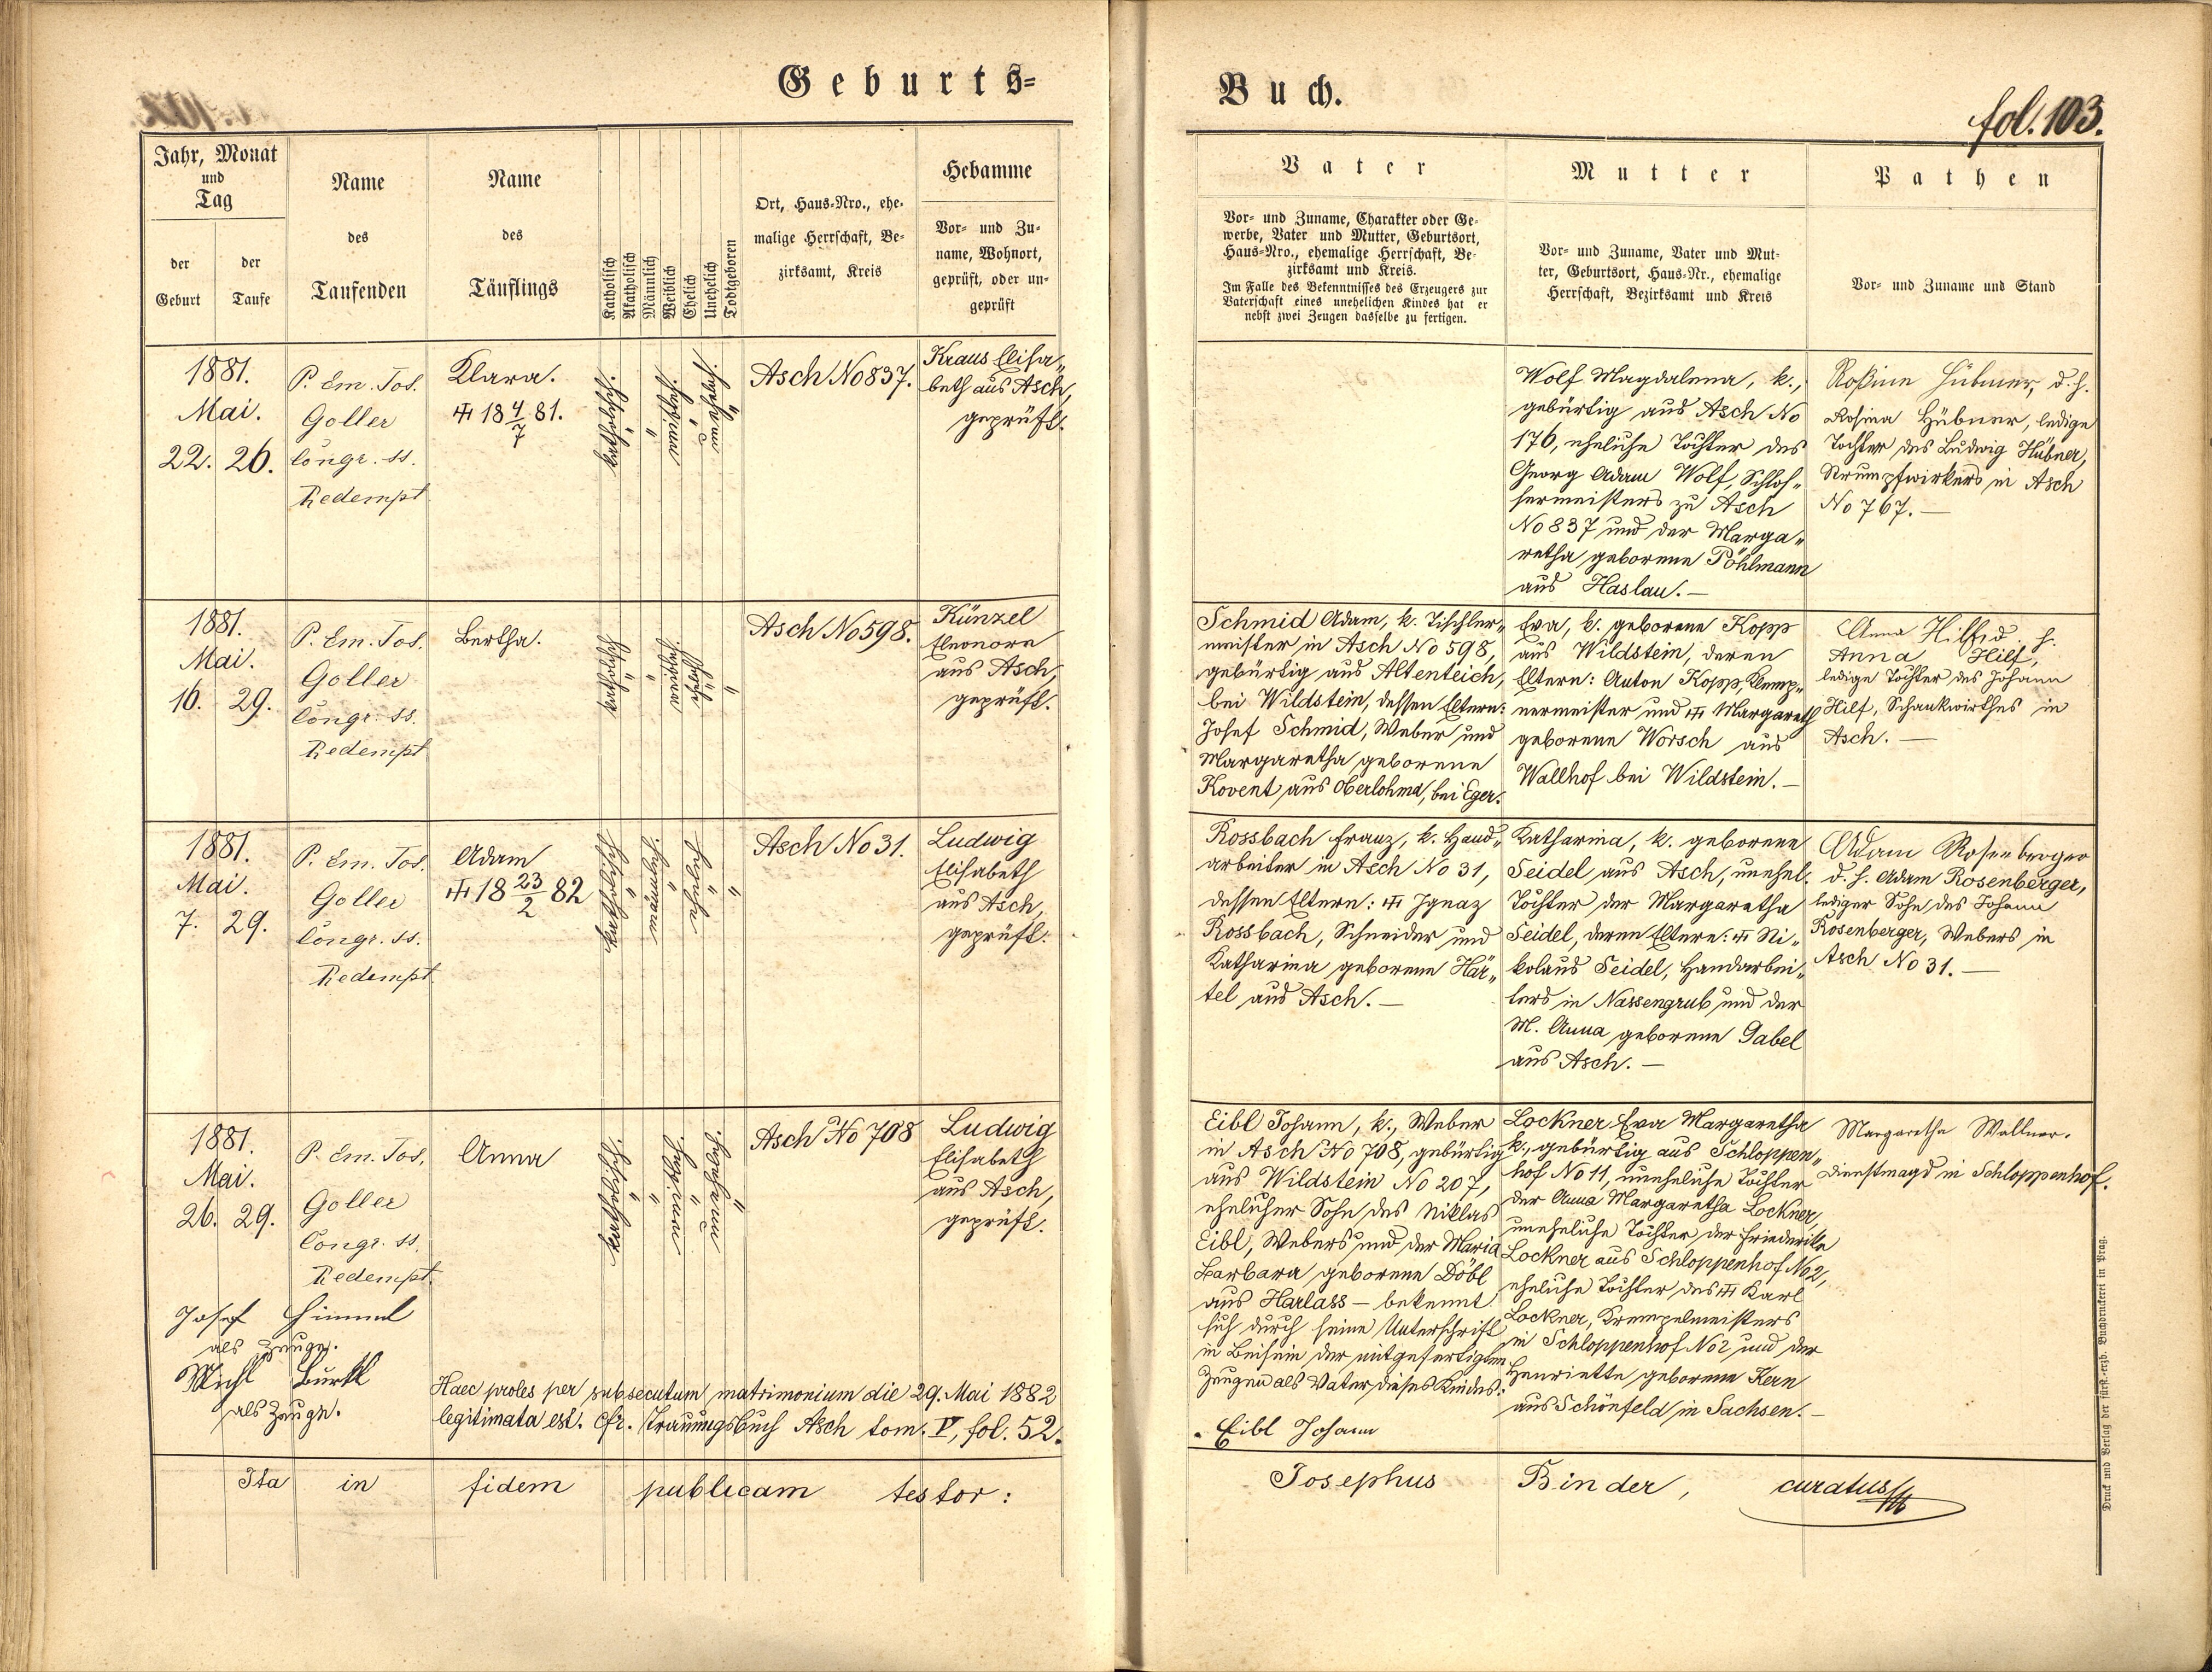 Geburts-
Buch.
fol. 103.
Jahr, Monat
und
Tag
der
Geburt
der
Taufe
Name
des
Taufenden
Name
des
Täuflings
Katholisch
Akatholisch
Männlich
Weiblich
Ehelich
Unehelich
Todtgeboren
Ort, Haus-Nro., ehe-
malige Herrschaft, Be-
zirksamt, Kreis
Hebamme
Vor- und Zu-
name, Wohnort,
geprüft, oder un-
geprüft
Vater
Vor- und Zuname, Charakter oder Ge-
werbe, Vater und Mutter, Geburtsort,
Haus-Nro., ehemalige Herrschaft, Be-
zirksamt und Kreis.
Im Falle des Bekenntnisses des Erzeugers zur
Vaterschaft eines unehelichen Kindes hat er
nebst zwei Zeugen dasselbe zu fertigen.
Mutter
Vor- und Zuname, Vater und Mut-
ter, Geburtsort, Haus-Nr., ehemalige
Herrschaft, Bezirksamt und Kreis
Pathen
Vor- und Zuname und Stand
1881.
Mai.
22. 26.
P. Em. Jos.
Goller
Congr. ss.
Redempt
Klara.
18 4/7 81.
katholisch.
"
"
Asch No 837.
Kraus Elisa„
beth aus Asch,
geprüft.
Wolf Magdalena, k.,
gebürtig aus Asch No
176, eheliche Tochter des
Georg Adam Wolf, Schlos„
sermeisters zu Asch
No 837 und der Marga„
retha geborene Pöhlmann
aus Haslau. —
Rosina Hübner, d. h.
Rosina Hübner, ledige
Tochter des Ludwig Hübner,
Strumpfwirkers in Asch
No 767. —
1881.
Mai.
16. 29.
P. Em. Jos.
Goller
Congr. ss.
Redempt
Bertha.
katholisch
"
"
Asch No 598.
Künzel
Eleonora
aus Asch,
geprüft.
Schmid Adam, k. Tischler„
meister in Asch No 598,
gebürtig aus Altenteich,
bei Wildstein, dessen Eltern:
Josef Schmid, Weber und
Margaretha geborene
Kovent aus Oberlohma, bei Eger.
Eva, k. geborene Kopp
aus Wildstein, deren
Eltern: Anton Kopp, Klemp„
nermeister und Margareth
geborene Worsch aus
Wallhof bei Wildstein. —
Anna Hilf d. h.
Anna Hilf,
ledige Tochter des Johann
Hilf, Schankwirthes in
Asch. —
1881.
Mai.
7. 29.
P. Em. Jos.
Goller
Congr. ss.
Redempt
Adam
18 23/2 82
katholisch
"
"
"
Asch No 31.
Ludwig
Elisabeth
aus Asch,
geprüft.
Rossbach Franz, k. Hand„
arbeiter in Asch No 31,
dessen Eltern: Ignaz
Rossbach, Schneider und
Katharina geborene Här„
tel aus Asch. —
Katharina, k. geborene
Seidel aus Asch, unehel.
Tochter der Margaretha
Seidel, deren Eltern: Ni„
kolaus Seidel, Handarbei„
ters in Nassengrub und der
M. Anna geborene Gabel
aus Asch. —
Adam Rosenberger
d. h. Adam Rosenberger,
lediger Sohn des Johann
Rosenberger, Webers in
Asch No 31. —
1881.
Mai.
26. 29.
P. Em. Jos.
Goller
Congr. ss.
Redempt.
Anna
katholisch.
"
"
"
Asch No 708
Ludwig
Elisabeth
aus Asch,
geprüft.
Eibl Johann, k., Weber
in Asch No 708, gebürtig
aus Wildstein No 207,
ehelicher Sohn des Niklas
Eibl, Webers und der Maria
Barbara geborene Döbl
aus Harlass — bekennt
sich durch seine Unterschrift
in Beisein der mitgefertigten
Zeugen als Vater dieses Kindes:
Eibl Johann
Lockner Eva Margaretha
k., gebürtig aus Schloppen„
hof No 11, uneheliche Tochter
der Anna Margaretha Lockner,
uneheliche Tochter der Friederike
Lockner aus Schloppenhof No 2,
eheliche Tochter des Karl
Lockner, Krempelmeisters
in Schloppenhof No 2 und der
Henriette geborene Kern
aus Schönfeld in Sachsen. —
Margaretha Wallner.
Dienstmagd in Schloppenhof.
Josef Himml
als Zeuge.
Michl Bürkl
als Zeuge.
Haec proles per subsecutum matrimonium die 29. Mai 1882
legitimata est. Cfr. Trauungsbuch Asch tom. V, fol. 52.
Ita in fidem publicam testor:
Josephus Binder, curatus
Druck und Verlag der fürst.-erzb. Buchdruckerei in Prag.